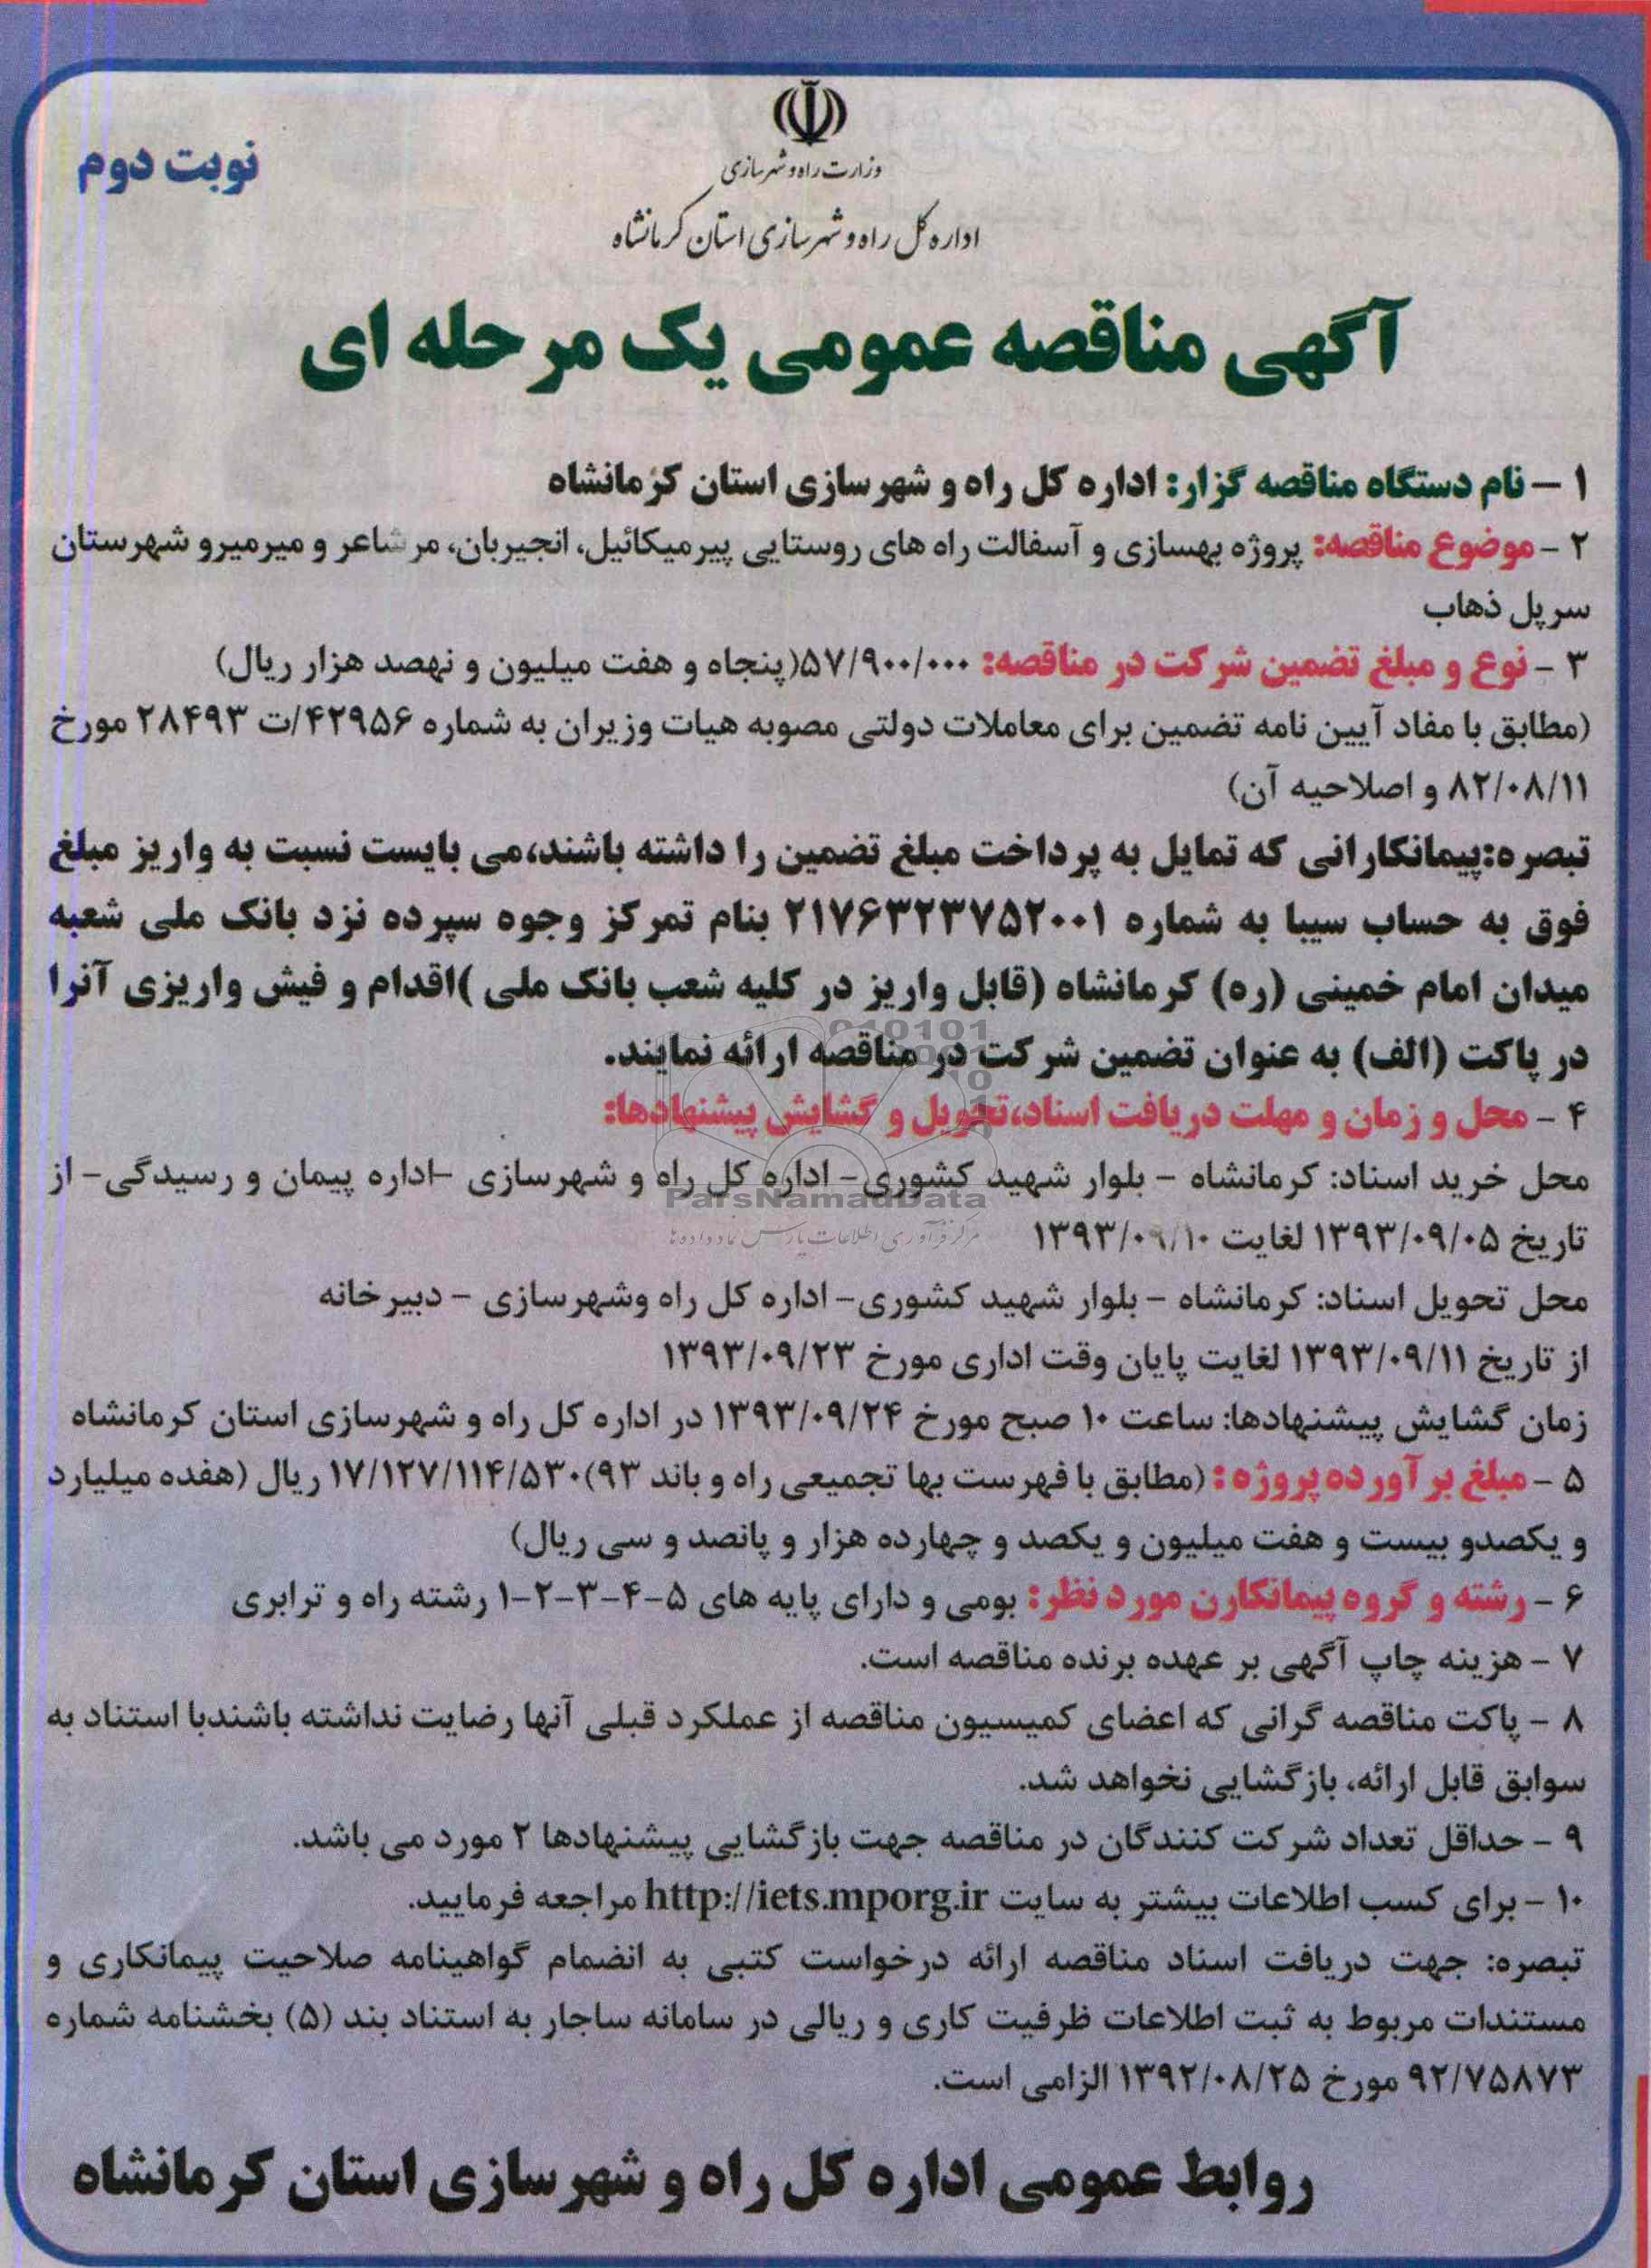 نوبت دوم
وزارت راه و شهرسازی
اداره کل راه و شهرسازی استان کرمانشاه
آگهی مناقصه عمومی یک مرحله ای
۱ – نام دستگاه مناقصه گزار: اداره کل راه و شهرسازی استان کرمانشاه
۲ - موضوع مناقصه: پروژه بهسازی و آسفالت راه های روستایی پیرمیکائیل، انجیربان، مرشاعر و میرمیرو شهرستان
سرپل ذهاب
۳ - نوع و مبلغ تضمین شرکت در مناقصه: ۵۷/۹۰۰/۰۰۰(پنجاه و هفت میلیون و نهصد هزار ریال)
(مطابق با مفاد آیین نامه تضمین برای معاملات دولتی مصوبه هیات وزیران به شماره ۴۲۹۵۶/ت ۲۸۴۹۳ مورخ
۸۲/۰۸/۱۱ و اصلاحیه آن)
تبصره:پیمانکارانی که تمایل به پرداخت مبلغ تضمین را داشته باشند،می بایست نسبت به واریز مبلغ
فوق به حساب سیبا به شماره ۲۱۷۶۳۲۳۷۵۲۰۰۱ بنام تمرکز وجوه سپرده نزد بانک ملی شعبه
میدان امام خمینی (ره) کرمانشاه (قابل واریز در کلیه شعب بانک ملی )اقدام و فیش واریزی آنرا
در پاکت (الف) به عنوان تضمین شرکت در مناقصه ارائه نمایند.
۴ - محل و زمان و مهلت دریافت اسناد،تحویل و گشایش پیشنهادها:
محل خرید اسناد: کرمانشاه – بلوار شهید کشوری- اداره کل راه و شهرسازی -اداره پیمان و رسیدگی- از
تاریخ ۱۳۹۳/۰۹/۰۵ لغایت ۱۳۹۳/۰۹/۱۰
محل تحویل اسناد: کرمانشاه – بلوار شهید کشوری- اداره کل راه وشهرسازی – دبیرخانه
از تاریخ ۱۳۹۳/۰۹/۱۱ لغایت پایان وقت اداری مورخ ۱۳۹۳/۰۹/۲۳
زمان گشایش پیشنهادها: ساعت ۱۰ صبح مورخ ۱۳۹۳/۰۹/۲۴ در اداره کل راه و شهرسازی استان کرمانشاه
۵ - مبلغ برآورده پروژه : (مطابق با فهرست بها تجمیعی راه و باند ۹۳)۱۷/۱۲۷/۱۱۴/۵۳۰ ریال (هفده میلیارد
و یکصدو بیست و هفت میلیون و یکصد و چهارده هزار و پانصد و سی ریال)
۶ - رشته و گروه پیمانکارن مورد نظر: بومی و دارای پایه های ۵-۴-۳-۲-۱ رشته راه و ترابری
۷ - هزینه چاپ آگهی بر عهده برنده مناقصه است.
۸ - پاکت مناقصه گرانی که اعضای کمیسیون مناقصه از عملکرد قبلی آنها رضایت نداشته باشندبا استناد به
سوابق قابل ارائه، بازگشایی نخواهد شد.
۹ - حداقل تعداد شرکت کنندگان در مناقصه جهت بازگشایی پیشنهادها ۲ مورد می باشد.
۱۰ - برای کسب اطلاعات بیشتر به سایت http://iets.mporg.ir مراجعه فرمایید.
تبصره: جهت دریافت اسناد مناقصه ارائه درخواست کتبی به انضمام گواهینامه صلاحیت پیمانکاری و
مستندات مربوط به ثبت اطلاعات ظرفیت کاری و ریالی در سامانه ساجار به استناد بند (۵) بخشنامه شماره
۹۲/۷۵۸۷۳ مورخ ۱۳۹۲/۰۸/۲۵ الزامی است.
روابط عمومی اداره کل راه و شهرسازی استان کرمانشاه
ParsNamadData
مرکز فرآوری اطلاعات پارس نماد داده ها